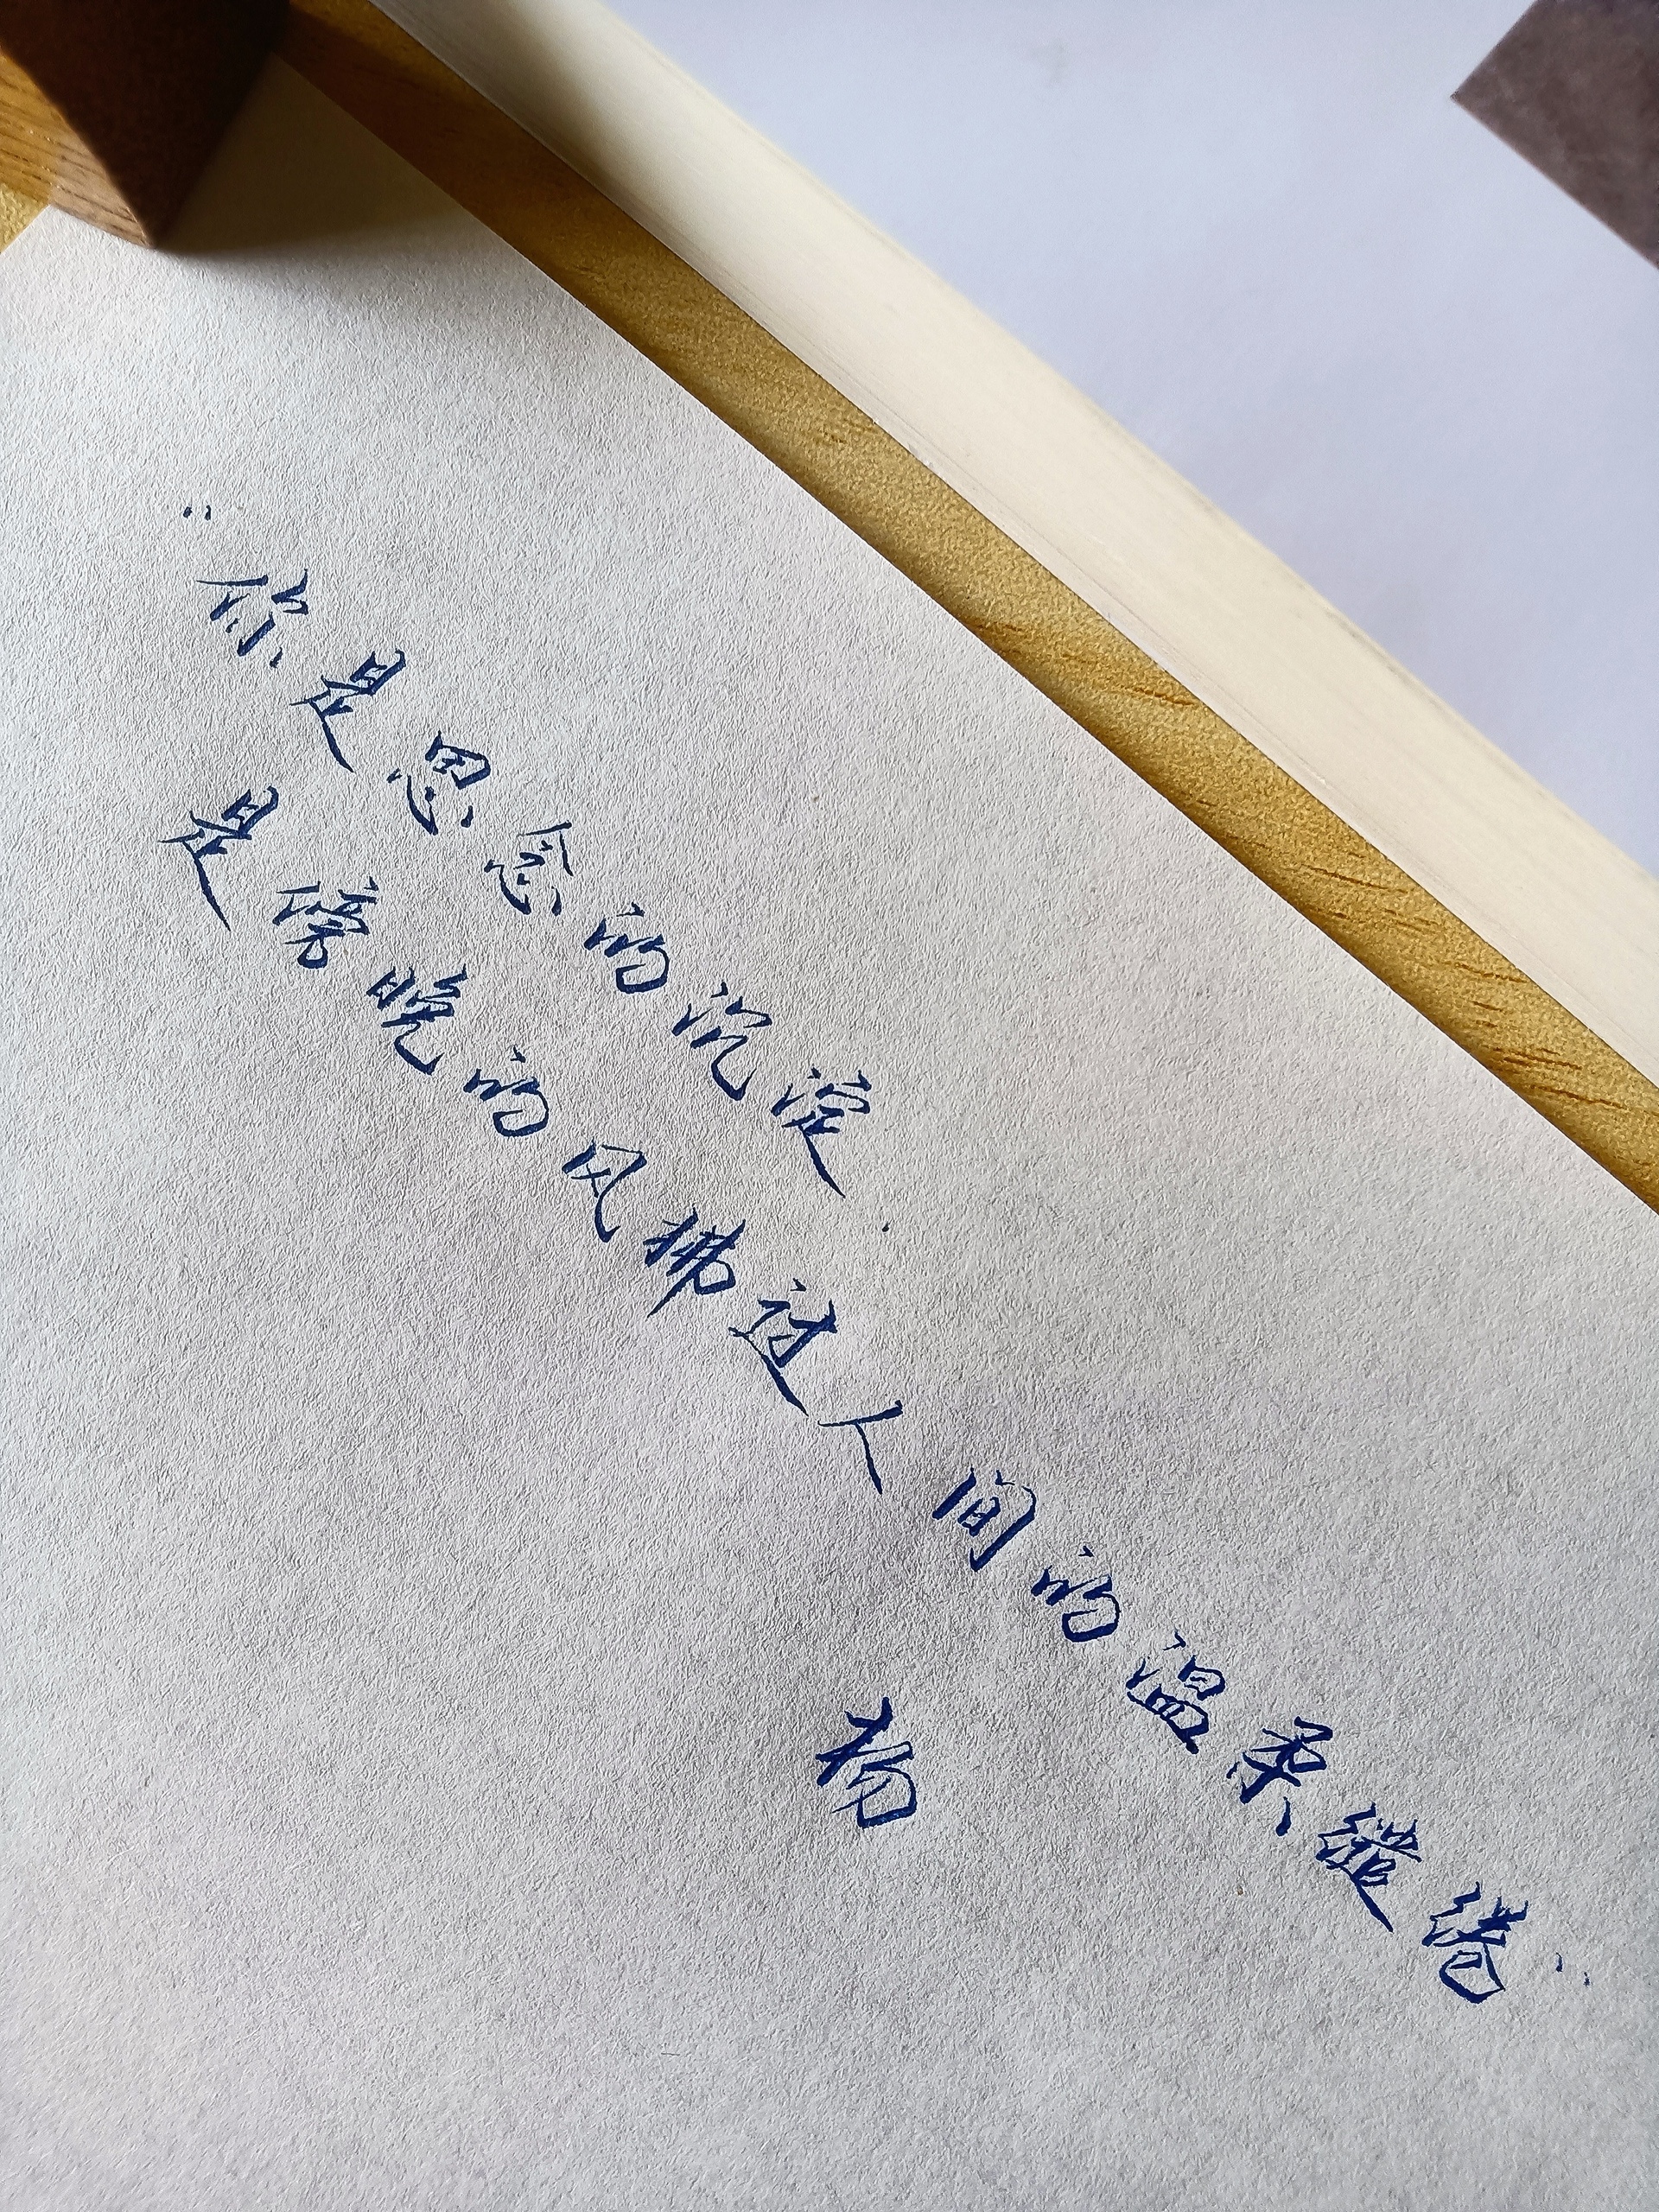 “你是思念的沉淀.
是傍晚的风拂过人间的温柔缱绻”
杨